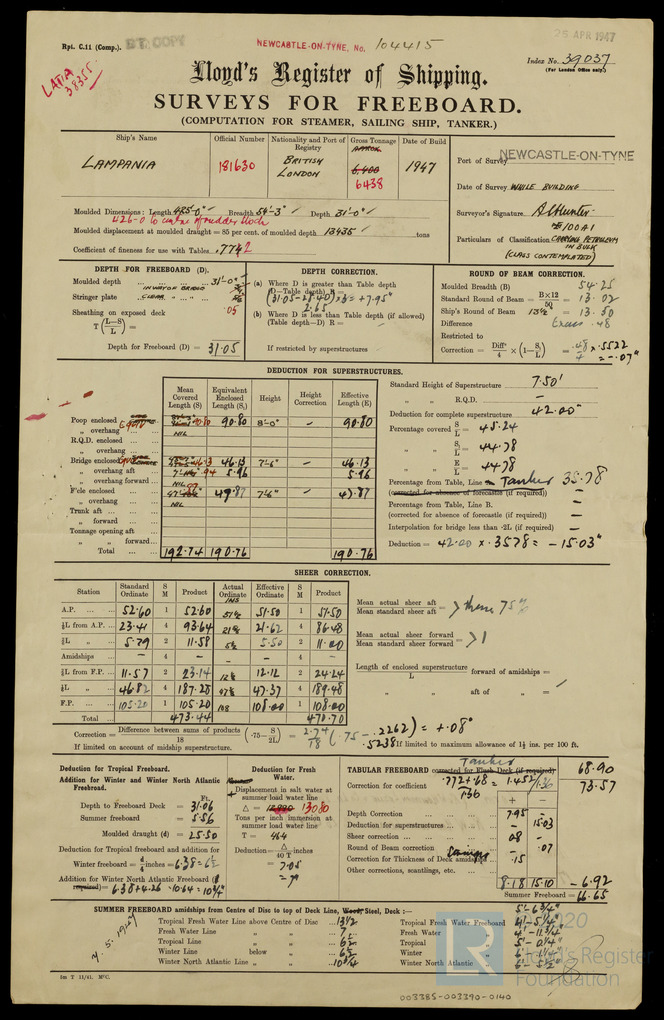 25 APR 1947
Rpt. C.11 (Comp.).
NEWCASTLE-ON-TYNE, No. 104415
Index No. 39037
(For London Office only.)
LATIA
38355
Lloyd's Register of Shipping.
SURVEYS FOR FREEBOARD.
(COMPUTATION FOR STEAMER, SAILING SHIP, TANKER.)
Ship's Name
Official Number
Nationality and Port of Registry
Gross Tonnage
Date of Build
LAMPANIA
181630
BRITISH
LONDON
6,400
6438
1947
Port of Survey NEWCASTLE-ON-TYNE
Date of Survey WHILE BUILDING
Surveyor's Signature
Particulars of Classification 100A1
CARRYING PETROLEUM
IN BULK
(CLASS CONTEMPLATED)
Moulded Dimensions: Length 425'-0" Breadth 54'-3" Depth 31'-0"
426-0 to centre of rudder stock
Moulded displacement at moulded draught = 85 per cent. of moulded depth 13435 tons
Coefficient of fineness for use with Tables .772
DEPTH FOR FREEBOARD (D).
Moulded depth 31'-0"
Stringer plate .05
Sheathing on exposed deck
T (L—S / L) =
Depth for Freeboard (D) = 31.05
DEPTH CORRECTION.
(a) Where D is greater than Table depth
(D—Table depth) R =
(31.05-28.40) × 3 = +7.95"
2.65
(b) Where D is less than Table depth (if allowed)
(Table depth—D) R =
If restricted by superstructures
ROUND OF BEAM CORRECTION.
Moulded Breadth (B) 54.25
Standard Round of Beam = B×12 / 50 = 13.02
Ship's Round of Beam 13½" = 13.50
Difference Excess .48
Restricted to
Correction = Diff / 4 × (1—S₁/L) = .48/4 × .5522 = -.07"
DEDUCTION FOR SUPERSTRUCTURES.
Mean Covered Length (S)
Equivalent Enclosed Length (S₁)
Height
Height Correction
Effective Length (E)
Poop enclosed 90.80 90.80 8'-0" — 90.80
„ overhang NIL
R.Q.D. enclosed
„ overhang
Bridge enclosed 46.13 46.13 7'-6" — 46.13
„ overhang aft 5.96 5.96
„ overhang forward NIL
F'cle enclosed 47.87 7'-6" — 47.87
„ overhang NIL
Trunk aft
„ forward
Tonnage opening aft
„ „ forward
Total 192.74 190.76 190.76
Standard Height of Superstructure 7.50'
„ „ R.Q.D. —
Deduction for complete superstructure 42.00"
Percentage covered S/L = 45.24
„ „ S₁/L = 44.78
„ „ E/L = 44.78
Percentage from Table, Line Tanker 35.78
(corrected for absence of forecastle (if required)) —
Percentage from Table, Line B. —
(corrected for absence of forecastle (if required)) —
Interpolation for bridge less than ·2L (if required) —
Deduction = 42.00 × .3578 = -15.03"
SHEER CORRECTION.
Station
Standard Ordinate
S M
Product
Actual Ordinate
INS
Effective Ordinate
S M
Product
A.P. 52.60 1 52.60 51½ 51.50 1 51.50
⅙L from A.P. 23.41 4 93.64 21⅝ 21.62 4 86.48
⅓L „ 5.79 2 11.58 5½ 5.50 2 11.00
Amidships — 4 — — — 4 —
⅓L from F.P. 11.57 2 23.14 12⅛ 12.12 2 24.24
⅙L „ 46.82 4 187.28 47⅜ 47.37 4 189.48
F.P. 105.20 1 105.20 108 108.00 1 108.00
Total 473.44 470.70
Mean actual sheer aft
Mean standard sheer aft = > than 75%
Mean actual sheer forward
Mean standard sheer forward = > 1
Length of enclosed superstructure / L forward of amidships =
„ „ aft of „ =
Correction = Difference between sums of products / 18 (·75—S/2L) = 2.74/18 (.75 - .2262) = +.08"
.5238
If limited on account of midship superstructure.
If limited to maximum allowance of 1½ ins. per 100 ft.
Deduction for Tropical Freeboard.
Addition for Winter and Winter North Atlantic Freeboard.
Ft.
Depth to Freeboard Deck = 31.06
Summer freeboard = 5.56
Moulded draught (d) = 25.50
Deduction for Tropical freeboard and addition for
Winter freeboard = d/4 inches = 6.38 = 6½
Addition for Winter North Atlantic Freeboard (if required) = 6.38 + 4.26 = 10.64 = 10¾"
Deduction for Fresh Water.
Displacement in salt water at summer load water line
Δ = 13080
Tons per inch immersion at summer load water line
T = 46.4
Deduction = Δ / 40 T
= 7.05
= 7"
TABULAR FREEBOARD corrected for Flush Deck (if required) Tanker 68.90
Correction for coefficient .772+.68 / 1.36 = 1.452/1.36 73.57
+ —
Depth Correction 7.95
Deduction for superstructures 15.03
Sheer correction .08
Round of Beam correction .07
Correction for Thickness of Deck amidships .15
Other corrections, scantlings, etc.
8.18 15.10 -6.92
Summer Freeboard = 66.65
SUMMER FREEBOARD amidships from Centre of Disc to top of Deck Line, Wood, Steel, Deck:— 5'-6¾"
Tropical Fresh Water Line above Centre of Disc 13½
Fresh Water Line „ „ 7
Tropical Line „ „ 6½
Winter Line below „ 6½
Winter North Atlantic Line „ „ 10¾
Tropical Fresh Water Freeboard 4'-5¼"
Fresh Water „ 4'-11¾"
Tropical „ 5'-0¼"
Winter „ 6'-1¼"
Winter North Atlantic „ 6'-5½"
7.5.1947
5m T 11/41. MᶜC.
003385-003390-0140
LR
© 2020
Lloyd's Register
Foundation